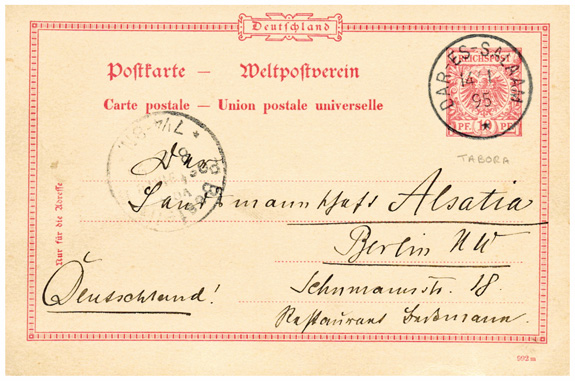 Deutschland
DAR-ES-SALAAM
14 1
95
REICHSPOST
10
PF PF
Postkarte — Weltpostverein
Carte postale — Union postale universelle
TABORA
Nur für die Adresse
Der
Landsmannschaft Alsatia
Berlin NW
Schumannstr. 18.
Restaurant Beckmann.
Deutschland!
992 m